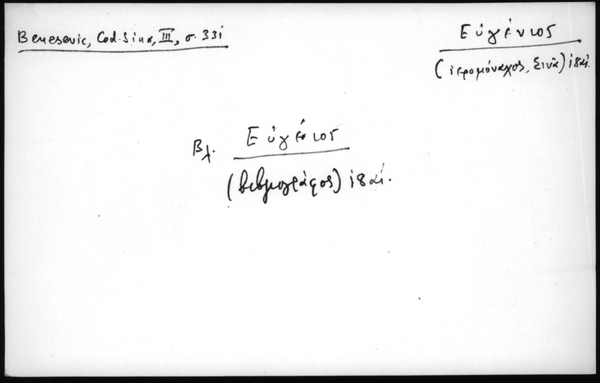 Benesevic, Cod. Sina, III, σ. 331
Εὐγένιος
(ἱερομόναχος, Σινᾶ) 18 αἰ.
Βλ. Εὐγένιος
(βιβλιογράφος) 18 αἰ.